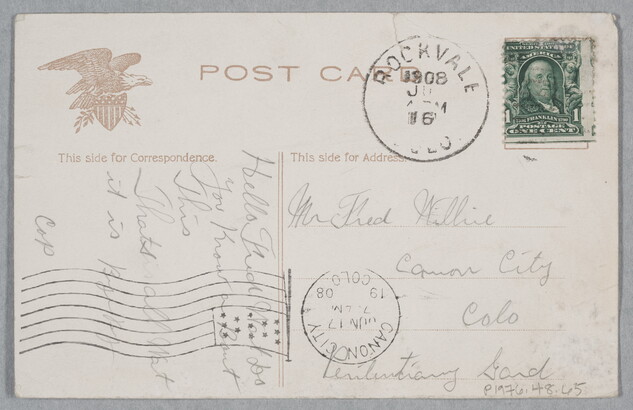 POST CARD
ROCKVALE
1908
16
COLO.
UNITED STATES OF
AMERICA
FRANKLIN
1 POSTAGE 1
ONE CENT
This side for Correspondence.
This side for Address
Hello Fred
you know
This
Thats all But
it is
Cop
Mr Fred
Canon City
Colo
Penitentiary Gard
CANON CITY
JUN 17
7 AM
19 08
COLO.
P1976.48.65